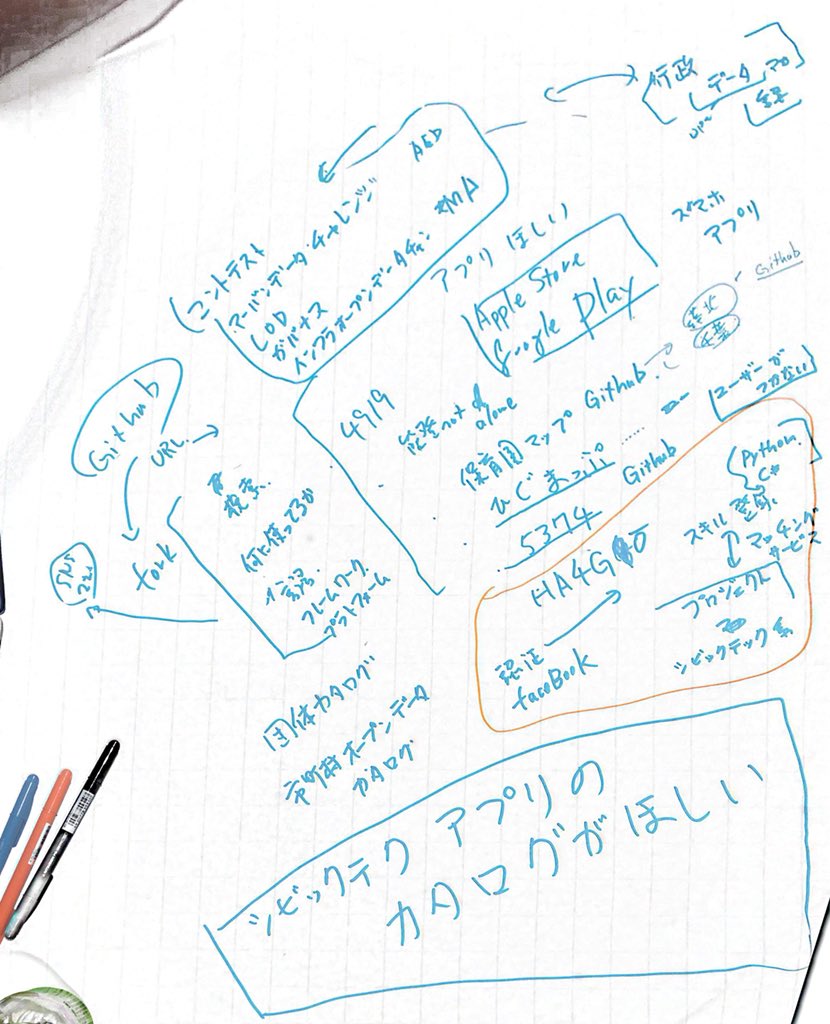 行政
データ
AED
コンテスト
アーバンデータチャレンジ
LOD
ガバナス
インフラオープンデータチャレ
アプリ ほしい
スマホ
アプリ
Apple Store
Google Play
Github
Github
URL
fork
SNS
4919
not alone
保育園マップ Github
ひぐまっぷ ……
5374 Github
ユーザーが
つかない
検索
何に使ってるか
言語
フレームワーク
プラットフォーム
Python
C#
スキル登録
マッチング
サービス
HA4GO
プロジェクト
シビックテック系
認証
faceBook
団体カタログ
市町村オープンデータ
カタログ
シビックテク アプリの
カタログがほしい